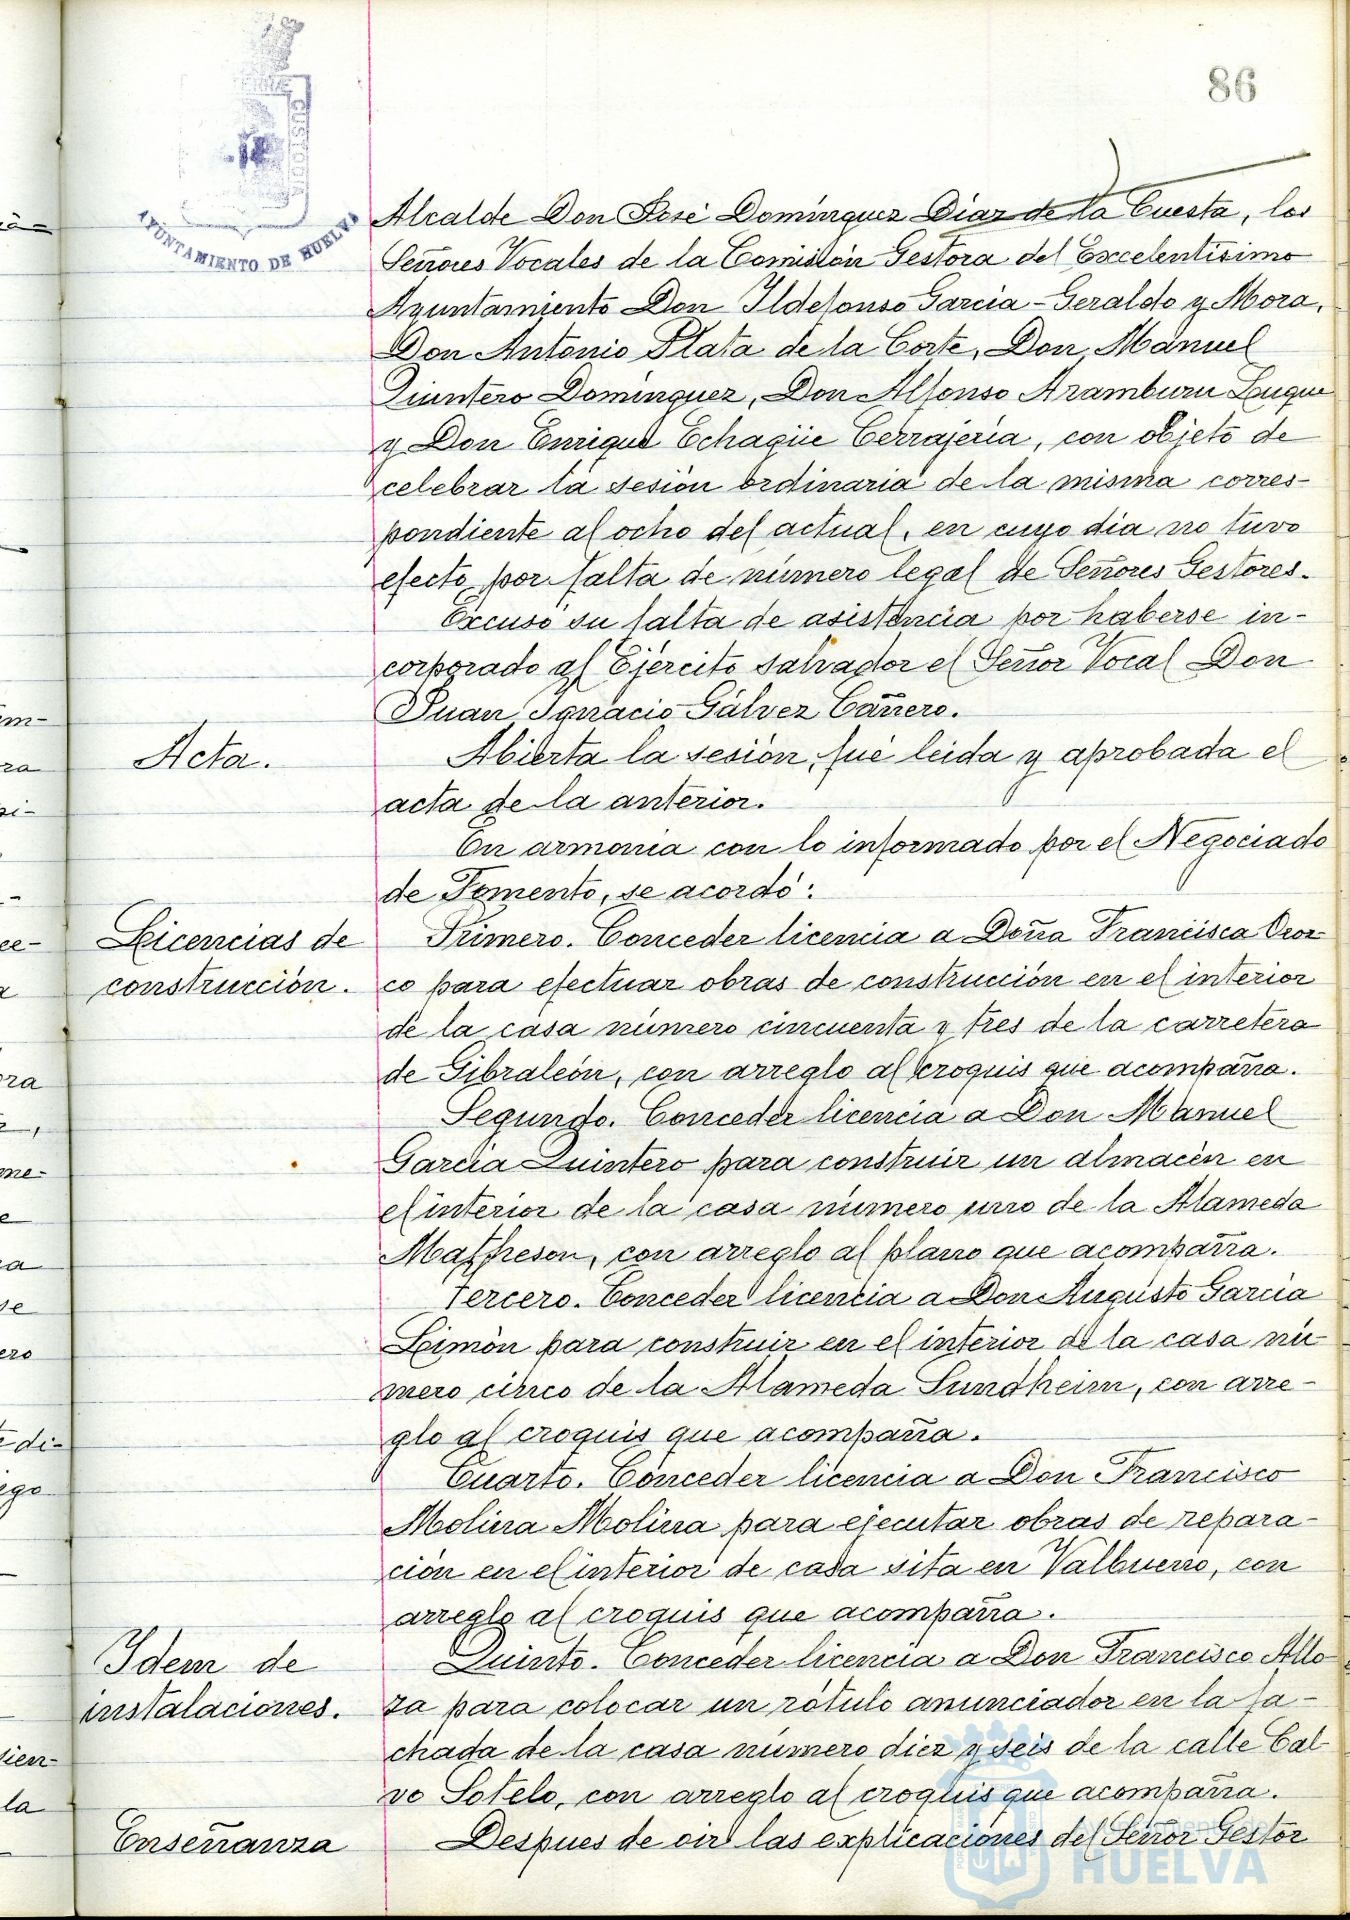 86
TERRÆ
CUSTODIA
AYUNTAMIENTO DE HUELVA
Alcalde Don José Domínguez Díaz de la Cuesta, los
Señores Vocales de la Comisión Gestora del Excelentísimo
Ayuntamiento Don Ildefonso García-Geraldo y Mora,
Don Antonio Plata de la Corte, Don Manuel
Quintero Domínguez, Don Alfonso Aramburu Luque
y Don Enrique Echagüe Cerrajería, con objeto de
celebrar la sesión ordinaria de la misma corres-
pondiente al ocho del actual, en cuyo día no tuvo
efecto por falta de número legal de Señores Gestores.
Excusó su falta de asistencia por haberse in-
corporado al Ejército salvador el Señor Vocal Don
Juan Ignacio Gálvez Cañero.
Acta.
Abierta la sesión, fué leida y aprobada el
acta de la anterior.
En armonia con lo informado por el Negociado
de Fomento, se acordó:
Licencias de
construcción.
Primero. Conceder licencia a Doña Francisca Oroz-
co para efectuar obras de construcción en el interior
de la casa número cincuenta y tres de la carretera
de Gibraleón, con arreglo al croquis que acompaña.
Segundo. Conceder licencia a Don Manuel
García Quintero para construir un almacén en
el interior de la casa número uno de la Alameda
Matheson, con arreglo al plano que acompaña.
Tercero. Conceder licencia a Don Augusto García
Limón para construir en el interior de la casa nú-
mero cinco de la Alameda Sundheim, con arre-
glo al croquis que acompaña.
Cuarto. Conceder licencia a Don Francisco
Molina Molina para ejecutar obras de repara-
ción en el interior de casa sita en Valbueno, con
arreglo al croquis que acompaña.
Idem de
instalaciones.
Quinto. Conceder licencia a Don Francisco Allo-
za para colocar un rótulo anunciador en la fa-
chada de la casa número diez y seis de la calle Cal-
vo Sotelo, con arreglo al croquis que acompaña.
Enseñanza
Despues de oir las explicaciones del Señor Gestor
Ayuntamiento de
HUELVA